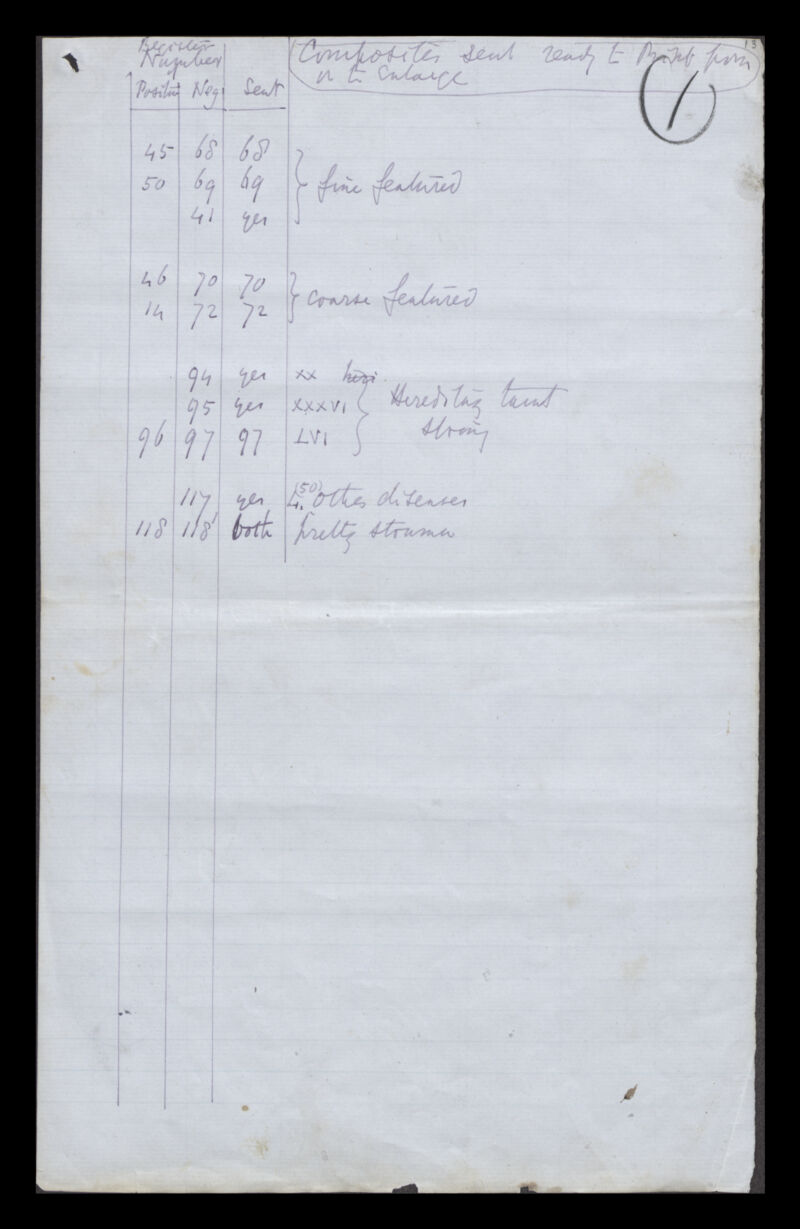 13
Register
Number
Composites sent ready to Print from
or to Enlarge
1
Positive Neg. Sent
45 68 68
50 69 69 } fine featured
41 yes
46 70 70
14 72 72 } coarse featured
94 yes xx
95 yes xxxvi } Hereditary taint
96 97 97 LVI strong
117 yes (50) other diseases
118 118 both pretty strumous